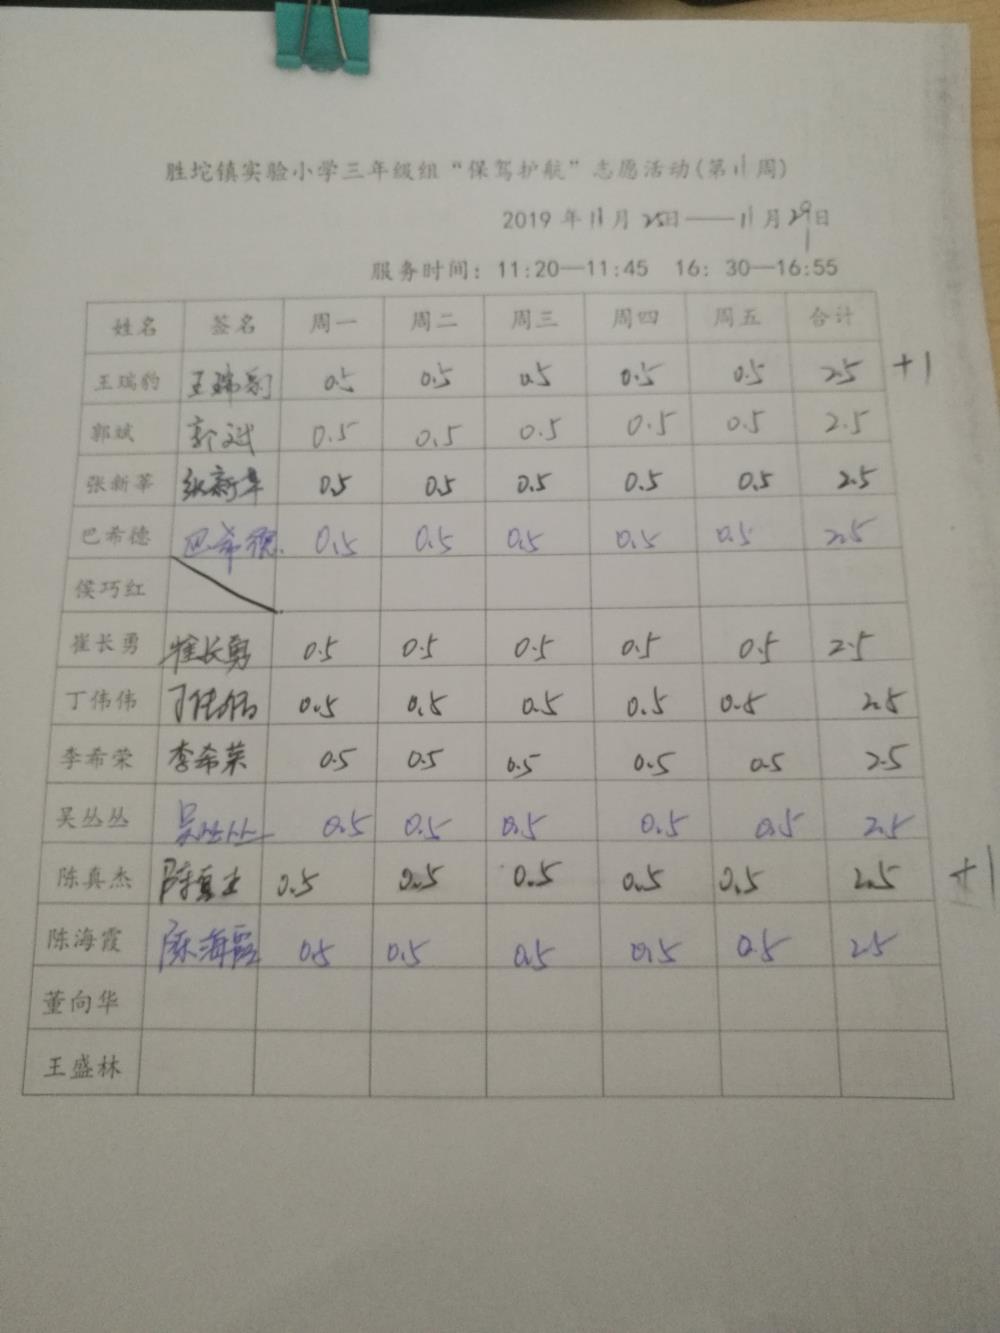 胜坨镇实验小学三年级组“保驾护航”志愿活动(第11周)
2019 年11月25日——11月29日
服务时间：11:20—11:45 16：30—16:55
姓名 签名 周一 周二 周三 周四 周五 合计
王瑞豹 王瑞豹 0.5 0.5 0.5 0.5 0.5 2.5 +1
郭斌 郭斌 0.5 0.5 0.5 0.5 0.5 2.5
张新莘 张新莘 0.5 0.5 0.5 0.5 0.5 2.5
巴希德 巴希德 0.5 0.5 0.5 0.5 0.5 2.5
侯巧红
崔长勇 崔长勇 0.5 0.5 0.5 0.5 0.5 2.5
丁伟伟 丁伟伟 0.5 0.5 0.5 0.5 0.5 2.5
李希荣 李希荣 0.5 0.5 0.5 0.5 0.5 2.5
吴丛丛 吴丛丛 0.5 0.5 0.5 0.5 0.5 2.5
陈真杰 陈真杰 0.5 0.5 0.5 0.5 0.5 2.5 +1
陈海霞 陈海霞 0.5 0.5 0.5 0.5 0.5 2.5
董向华
王盛林